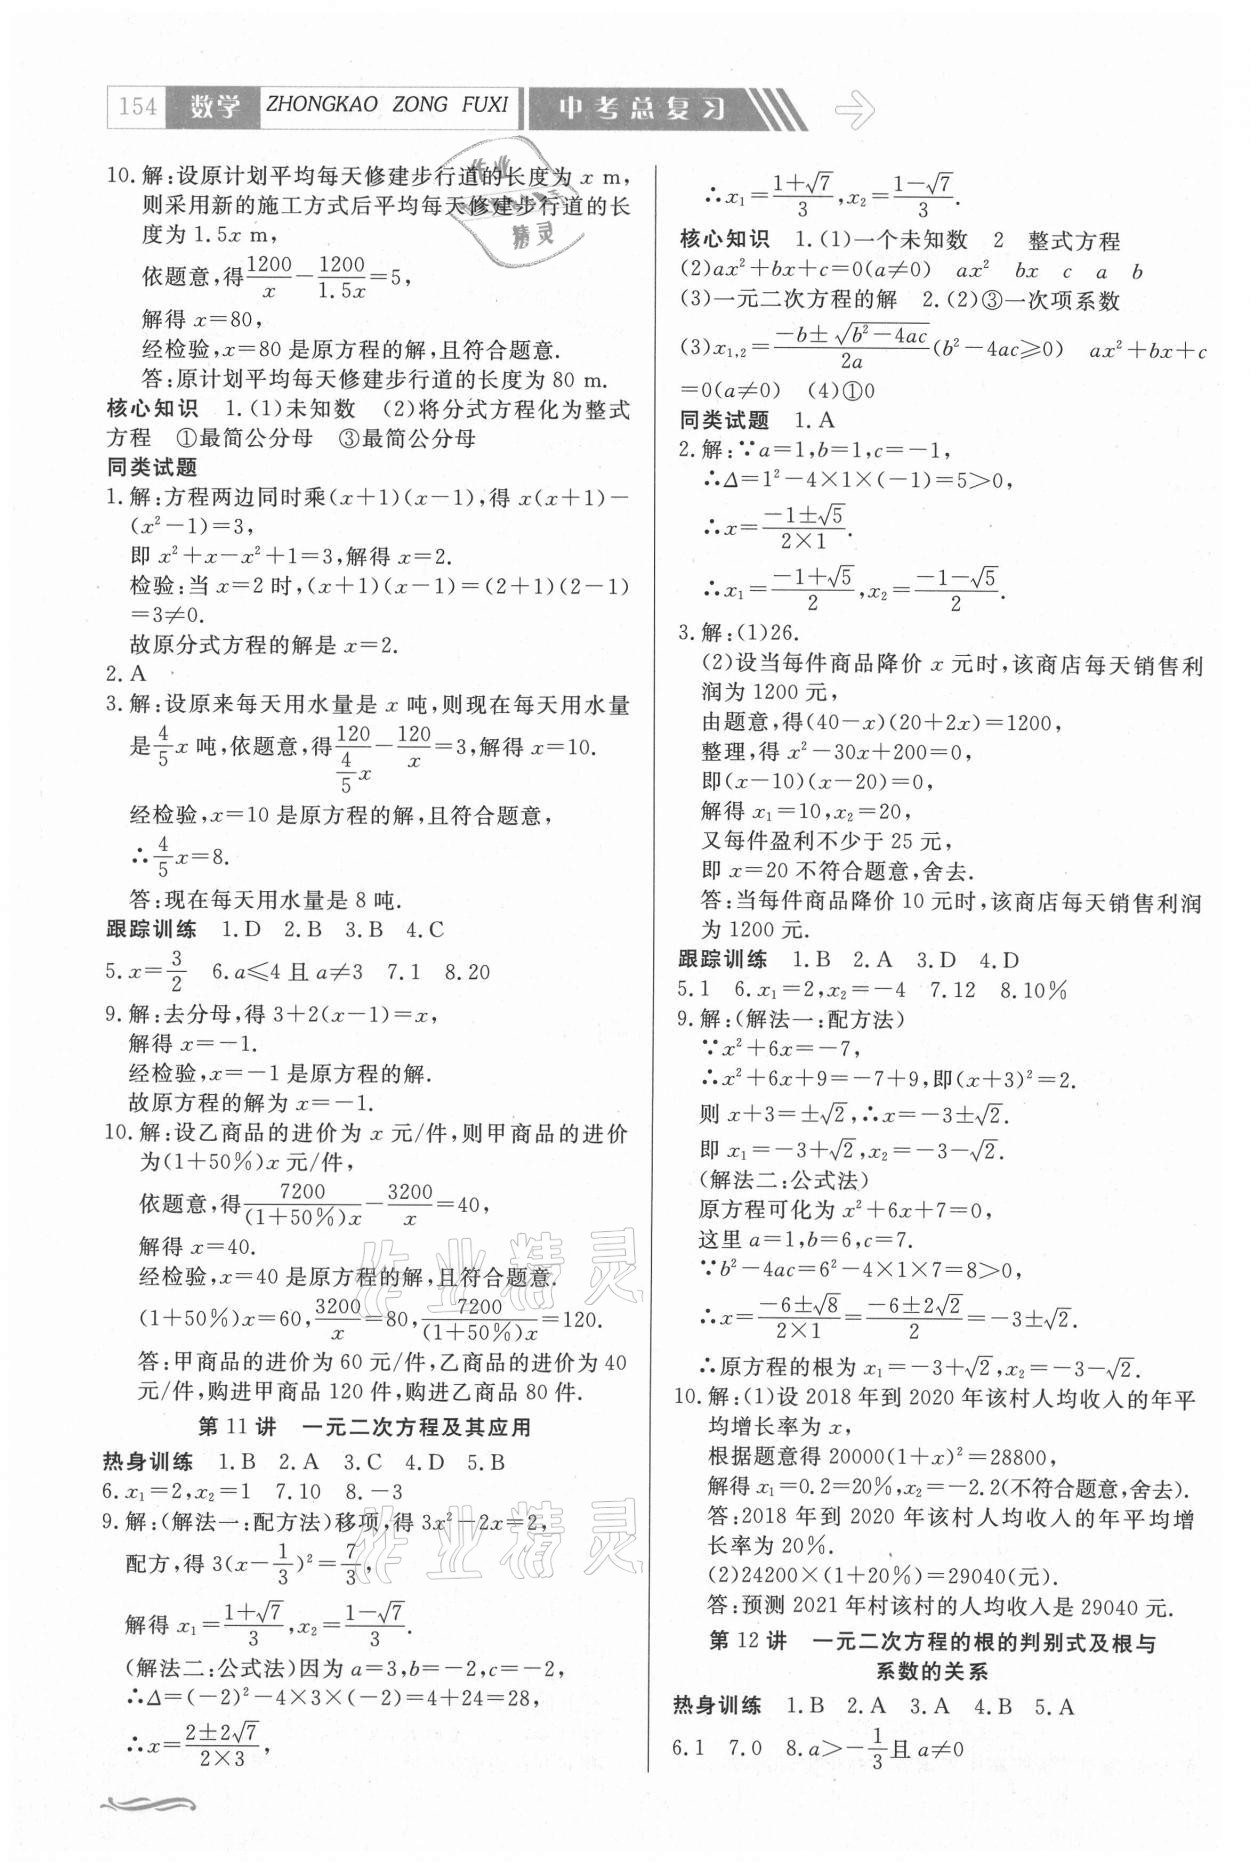 154 数学 ZHONGKAO ZONG FUXI 中考总复习
10.解:设原计划平均每天修建步行道的长度为 x m,
则采用新的施工方式后平均每天修建步行道的长
度为 1.5x m,
依题意,得1200/x－1200/1.5x＝5,
解得 x＝80,
经检验,x＝80 是原方程的解,且符合题意.
答:原计划平均每天修建步行道的长度为 80 m.
核心知识 1.(1)未知数 (2)将分式方程化为整式
方程 ①最简公分母 ③最简公分母
同类试题
1.解:方程两边同时乘(x＋1)(x－1),得 x(x＋1)－
(x²－1)＝3,
即 x²＋x－x²＋1＝3,解得 x＝2.
检验:当 x＝2 时,(x＋1)(x－1)＝(2＋1)(2－1)
＝3≠0.
故原分式方程的解是 x＝2.
2.A
3.解:设原来每天用水量是 x 吨,则现在每天用水量
是4/5x 吨,依题意,得120/(4/5x)－120/x＝3,解得 x＝10.
经检验,x＝10 是原方程的解,且符合题意,
∴4/5x＝8.
答:现在每天用水量是 8 吨.
跟踪训练 1.D 2.B 3.B 4.C
5.x＝3/2 6.a≤4 且 a≠3 7.1 8.20
9.解:去分母,得 3＋2(x－1)＝x,
解得 x＝－1.
经检验,x＝－1 是原方程的解.
故原方程的解为 x＝－1.
10.解:设乙商品的进价为 x 元/件,则甲商品的进价
为(1＋50%)x 元/件,
依题意,得7200/(1＋50%)x－3200/x＝40,
解得 x＝40.
经检验,x＝40 是原方程的解,且符合题意.
(1＋50%)x＝60,3200/x＝80,7200/(1＋50%)x＝120.
答:甲商品的进价为 60 元/件,乙商品的进价为 40
元/件,购进甲商品 120 件,购进乙商品 80 件.
第 11 讲 一元二次方程及其应用
热身训练 1.B 2.A 3.C 4.D 5.B
6.x₁＝2,x₂＝1 7.10 8.－3
9.解:(解法一:配方法)移项,得 3x²－2x＝2,
配方,得 3(x－1/3)²＝7/3,
解得 x₁＝(1＋√7)/3,x₂＝(1－√7)/3.
(解法二:公式法)因为 a＝3,b＝－2,c＝－2,
∴Δ＝(－2)²－4×3×(－2)＝4＋24＝28,
∴x＝(2±2√7)/(2×3),
∴x₁＝(1＋√7)/3,x₂＝(1－√7)/3.
核心知识 1.(1)一个未知数 2 整式方程
(2)ax²＋bx＋c＝0(a≠0) ax² bx c a b
(3)一元二次方程的解 2.(2)③一次项系数
(3)x₁,₂＝(－b±√(b²－4ac))/2a(b²－4ac≥0) ax²＋bx＋c
＝0(a≠0) (4)①0
同类试题 1.A
2.解:∵a＝1,b＝1,c＝－1,
∴Δ＝1²－4×1×(－1)＝5＞0,
∴x＝(－1±√5)/(2×1).
∴x₁＝(－1＋√5)/2,x₂＝(－1－√5)/2.
3.解:(1)26.
(2)设当每件商品降价 x 元时,该商店每天销售利
润为 1200 元,
由题意,得(40－x)(20＋2x)＝1200,
整理,得 x²－30x＋200＝0,
即(x－10)(x－20)＝0,
解得 x₁＝10,x₂＝20,
又每件盈利不少于 25 元,
即 x＝20 不符合题意,舍去.
答:当每件商品降价 10 元时,该商店每天销售利润
为 1200 元.
跟踪训练 1.B 2.A 3.D 4.D
5.1 6.x₁＝2,x₂＝－4 7.12 8.10%
9.解:(解法一:配方法)
∵x²＋6x＝－7,
∴x²＋6x＋9＝－7＋9,即(x＋3)²＝2.
则 x＋3＝±√2,∴x＝－3±√2.
即 x₁＝－3＋√2,x₂＝－3－√2.
(解法二:公式法)
原方程可化为 x²＋6x＋7＝0,
这里 a＝1,b＝6,c＝7.
∵b²－4ac＝6²－4×1×7＝8＞0,
∴x＝(－6±√8)/(2×1)＝(－6±2√2)/2＝－3±√2.
∴原方程的根为 x₁＝－3＋√2,x₂＝－3－√2.
10.解:(1)设 2018 年到 2020 年该村人均收入的年平
均增长率为 x,
根据题意得 20000(1＋x)²＝28800,
解得 x₁＝0.2＝20%,x₂＝－2.2(不符合题意,舍去).
答:2018 年到 2020 年该村人均收入的年平均增
长率为 20%.
(2)24200×(1＋20%)＝29040(元).
答:预测 2021 年村该村的人均收入是 29040 元.
第 12 讲 一元二次方程的根的判别式及根与
系数的关系
热身训练 1.B 2.A 3.A 4.B 5.A
6.1 7.0 8.a＞－1/3且 a≠0
作业精灵
作业精灵
作业
精灵